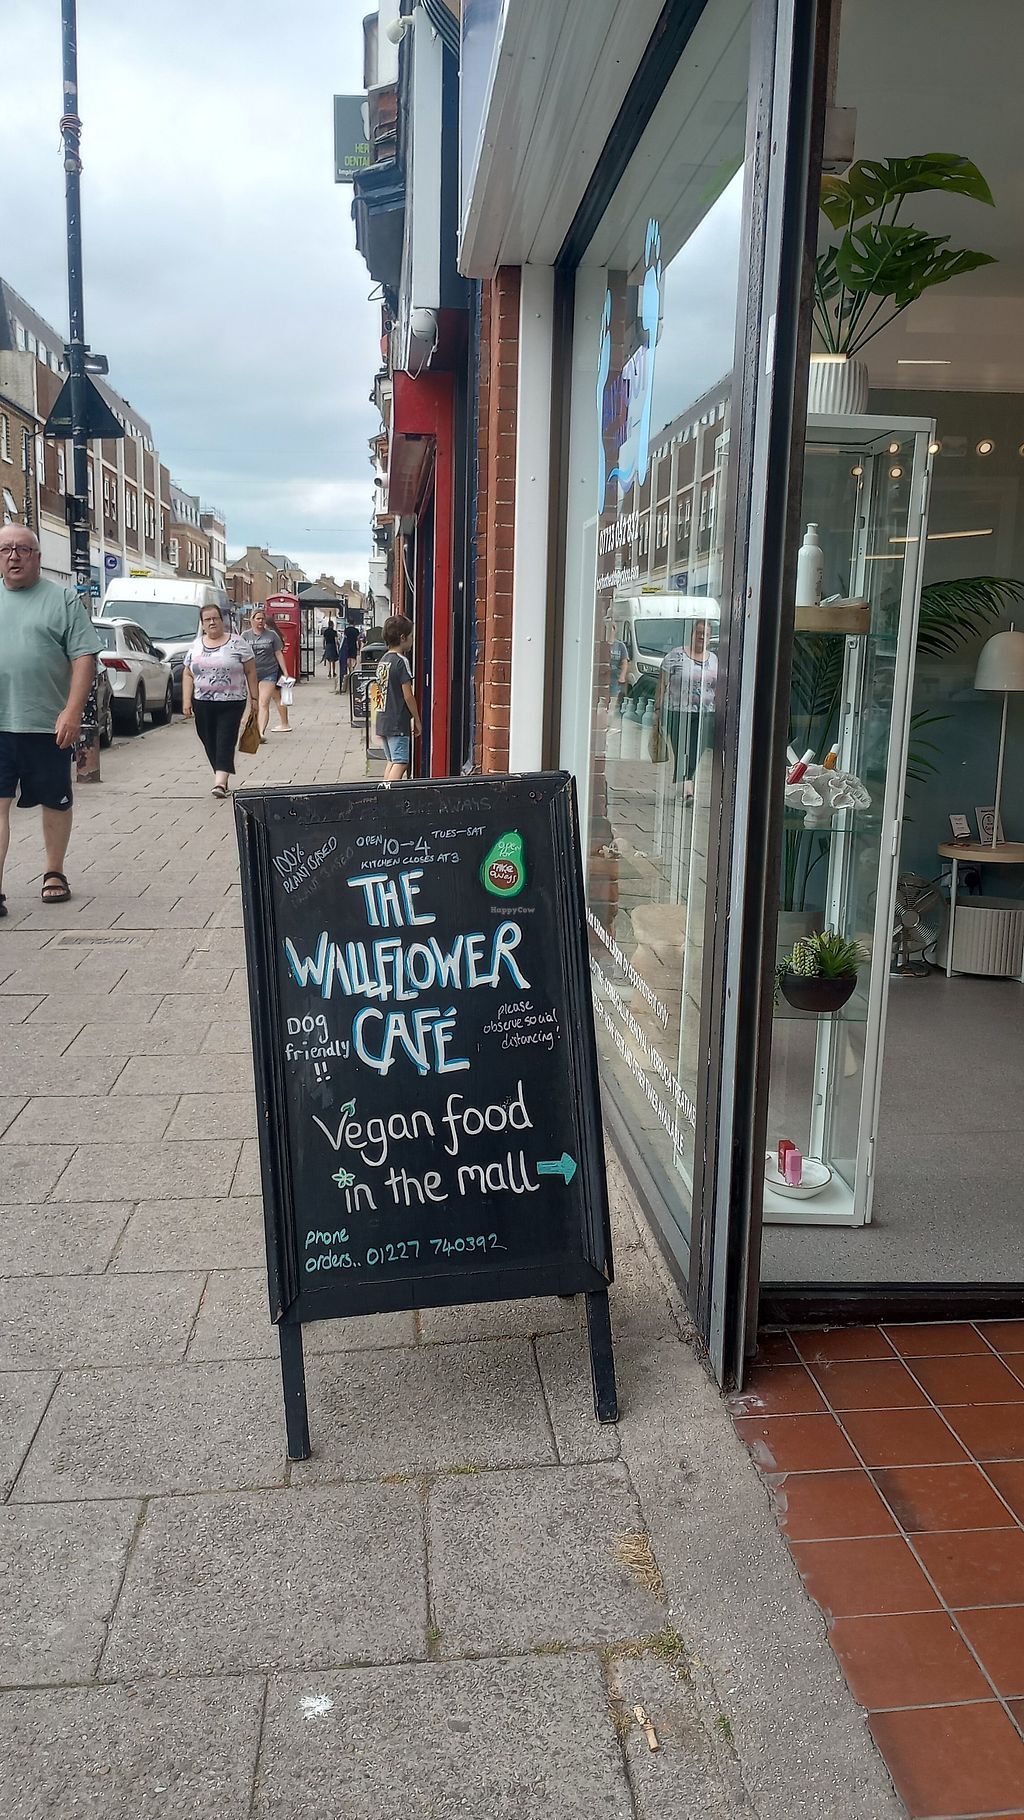 HER
DENTA
TAKEAWAYS
100%
PLANT BASED
OPEN 10-4 TUES-SAT
KITCHEN CLOSES AT 3
OPEN
for
TAKE
aways
HappyCow
THE
WALLFLOWER
CAFÉ
DOG
friendly
!!
please
observe social
distancing!
Vegan food
in the mall
phone
orders.. 01227 740392